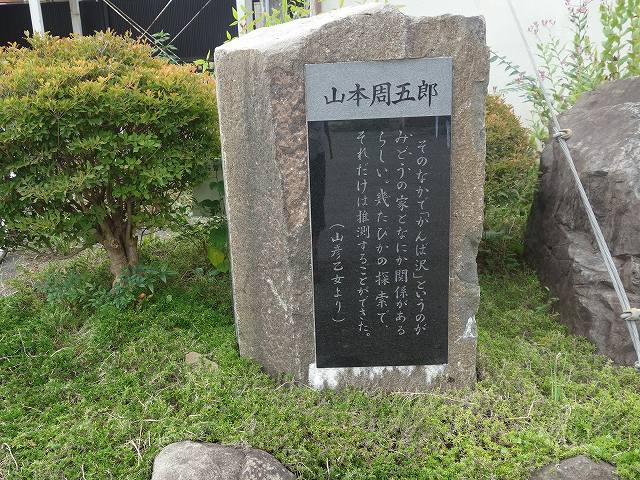 山本周五郎
そのなかで「かんば沢」というのが
みどうの家となにか関係がある
らしい。幾たびかの探索で、
それだけは推測することができた。
（山彦乙女より）